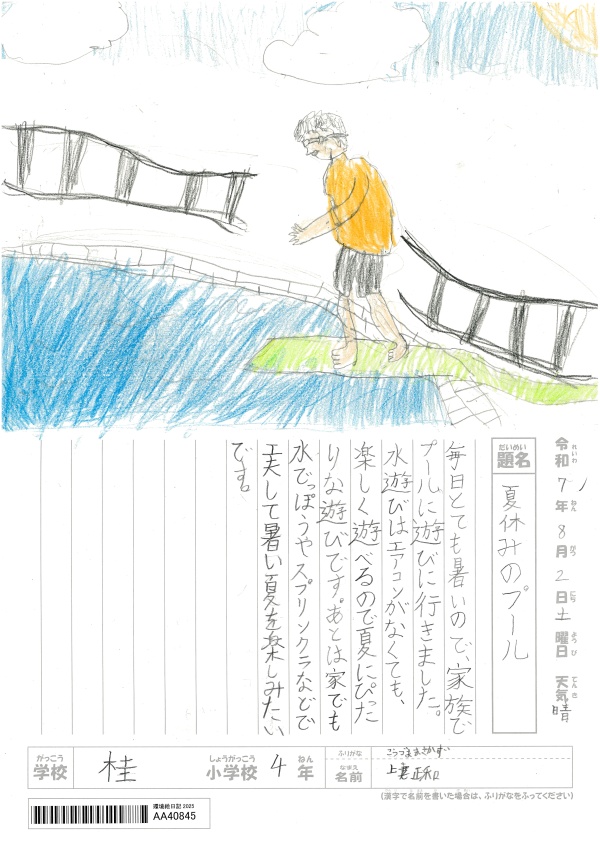 令和 7年 8月 2日 土曜日 天気 晴
れいわ ねん がつ にち ようび てんき
だいめい
題名 夏休みのプール
毎日とても暑いので、家族で
プールに遊びに行きました。
水遊びはエアコンがなくても、
楽しく遊べるので夏にぴった
りな遊びです。あとは家でも
水でっぽうやスプリンクラなどで
工夫して暑い夏を楽しみたい
です。
がっこう しょうがっこう ねん
学校 桂 小学校 4年
ふりがな こうづままさかず
なまえ
名前 上妻 正和
(漢字で名前を書いた場合は、ふりがなをふってください)
環境絵日記 2025
AA40845